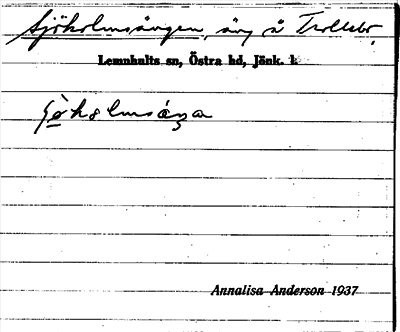 Sjöholmsängen, äng å Trollebo,
Lemnhults sn, Östra hd, Jönk. l.
Annalisa Anderson 1937